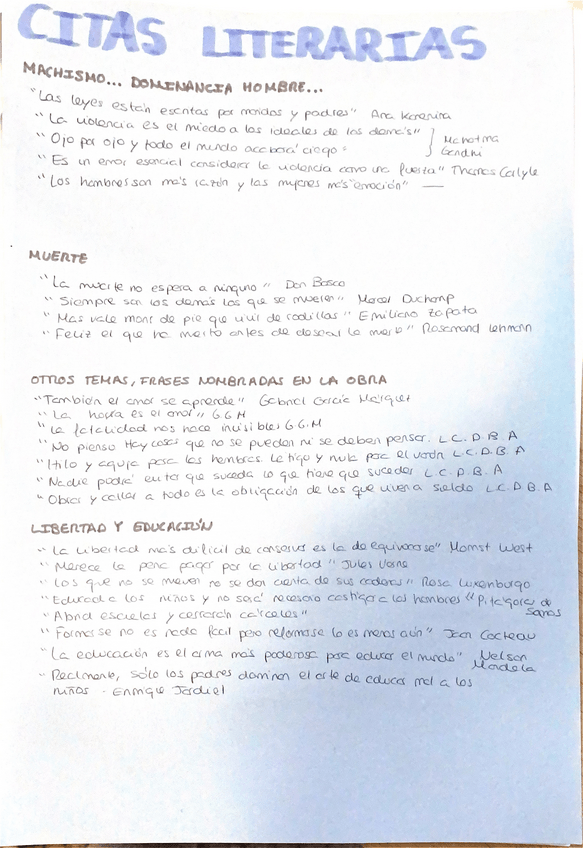 CITAS LITERARIAS
MACHISMO... DOMINANCIA HOMBRE...
"Las leyes están escritas por maridos y padres" Ana Karenina
"La violencia es el miedo a los ideales de los demás"
"Ojo por ojo y todo el mundo acabará ciego"
Mahatma
Gandhi
"Es un error esencial considerar la violencia como una fuerza" Thomas Carlyle
"Los hombres son más razón y las mujeres más "emoción" —
MUERTE
"La muerte no espera a ninguno" Don Bosco
"Siempre son los demás los que se mueren" Marcel Duchamp
"Mas vale morir de pie que vivir de rodillas" Emiliano Zapata
"Feliz el que ha muerto antes de desear la muerte" Rosamond Lehmann
OTROS TEMAS, FRASES NOMBRADAS EN LA OBRA
"También el amor se aprende" Gabriel García Márquez
"La honra es el amor" G.G.M
"La fatalidad nos hace invisibles G.G.M
"No pienso Hay cosas que no se pueden ni se deben pensar. L.C.D.B.A
"Hilo y aguja para las hembras. Latigo y mula para el varón L.C.D.B.A
"Nadie podrá evitar que suceda lo que tiene que suceder L.C.D.B.A
"Obrar y callar a todo es la obligación de los que viven a sueldo L.C.D.B.A
LIBERTAD Y EDUCACIÓN
"La libertad más dificil de conservar es la de equivocarse" Morris West
"Merece la pena pagar por la libertad" Jules Verne
"Los que no se mueven no se dan cuenta de sus cadenas" Rosa Luxenburgo
"Educad a los niños y no será necesario castigar a los hombres" Pitágoras de
Samos
"Abrid escuelas y cerrarán cárceles"
"Formarse no es nada fácil pero reformarse lo es menos aún" Jean Cocteau
"La educación es el arma más poderosa para educar el mundo" Nelson
Mandela
"Realmente, sólo los padres dominan el arte de educar mal a los
niños - Enrique Jardiel